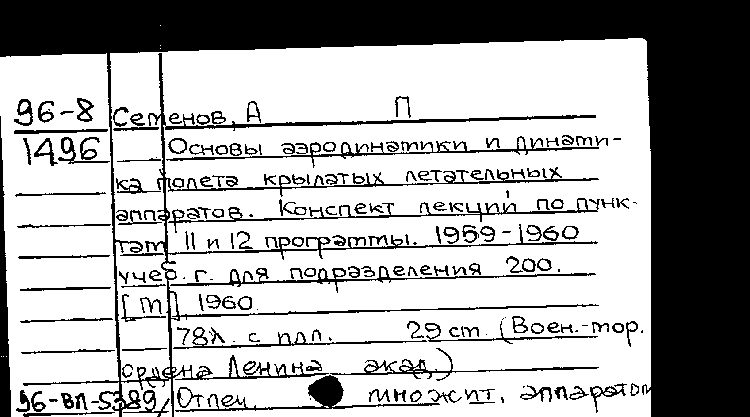 96-8 Семенов, А П
1496 Основы аэродинамики и динами-
ка полета крылатых летательных
аппаратов. Конспект лекций по пунк-
там 11 и 12 программы. 1959-1960
учеб. г. для подразделения 200.
[М], 1960
78л. с илл. 29 см. (Воен.-мор.
ордена Ленина акад.)
96-ВЛ-5389 Отпеч. множит. аппаратом